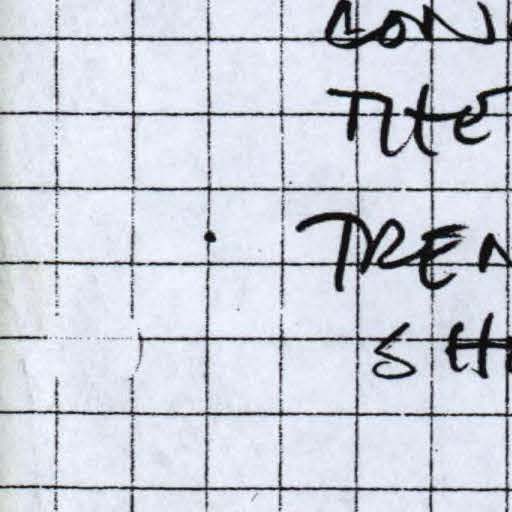 CON
THE
• TREN
SH